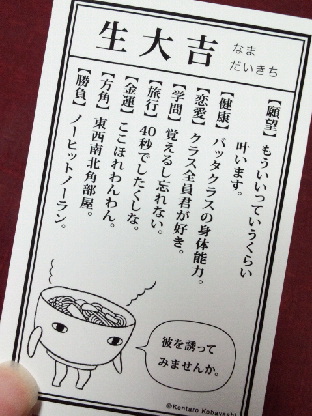 生大吉
なま
だいきち
【願望】もういいっていうくらい
叶います。
【健康】バッタクラスの身体能力。
【恋愛】クラス全員君が好き。
【学問】覚えるし忘れない。
【旅行】40秒でしたくしな。
【金運】ここほれわんわん。
【方角】東西南北角部屋。
【勝負】ノーヒットノーラン。
彼を誘って
みませんか。
©Kentaro Kobayashi